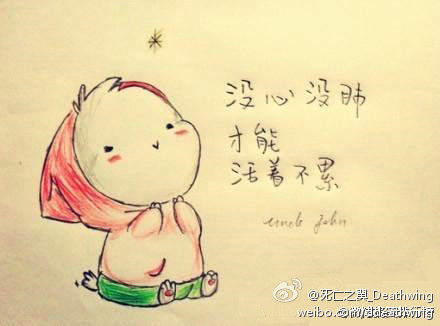 没心没肺
才能
活着不累
uncle John
@死亡之翼_Deathwing